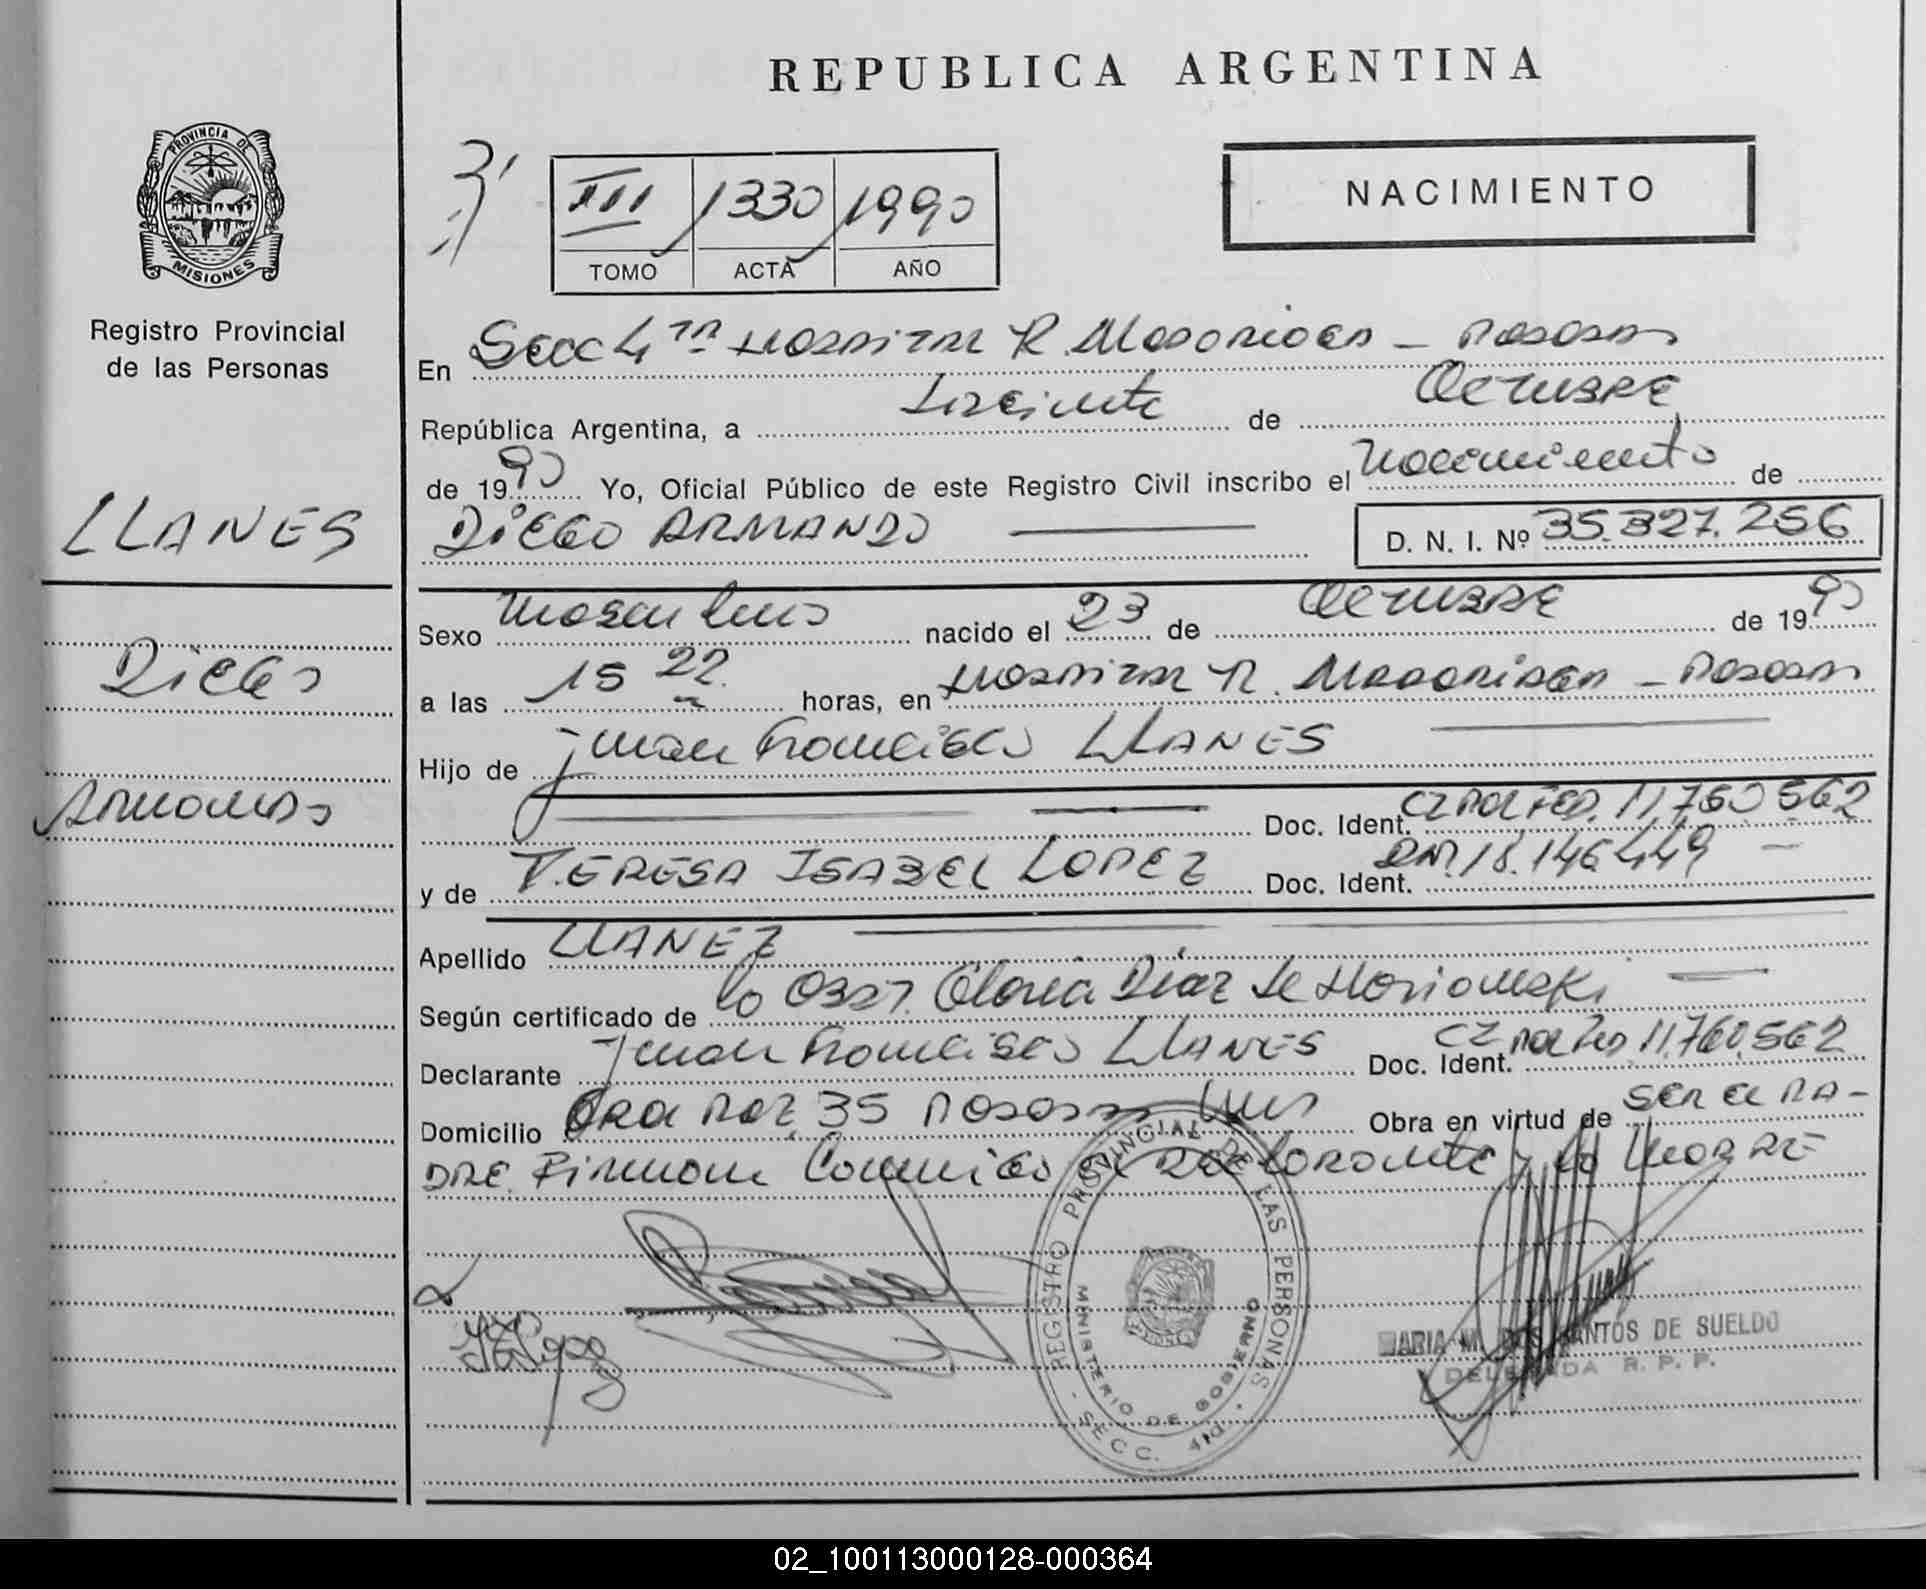 REPUBLICA ARGENTINA
PROVINCIA DE
MISIONES
Registro Provincial
de las Personas
III 1330 1990
TOMO ACTA AÑO
NACIMIENTO
En Secc 4ta Hospital R. Madariaga - Posadas
República Argentina, a treinta de Octubre
de 1990 Yo, Oficial Público de este Registro Civil inscribo el nacimiento de
LLANES
DIEGO ARMANDO
D. N. I. Nº 35.327.256
Sexo masculino nacido el 23 de Octubre de 1990
Diego
a las 15 22 horas, en Hospital R. Madariaga - Posadas
Hijo de Juan Francisco LLANES
Armando
Doc. Ident. CI Pol Fed. 11,760 562
y de TERESA ISABEL LOPEZ Doc. Ident. DNI. 18.146 449 -
Apellido LLANEZ
Según certificado de la Obst. Gloria Diaz de
Declarante Juan Francisco LLANES Doc. Ident. CI Pol Fed 11,760,562
Domicilio 35 Posadas Mns Obra en virtud de ser el PA-
DRE. Firman Conmigo el declarante y la MADRE
REGISTRO PROVINCIAL DE LAS PERSONAS
MINISTERIO DE GOBIERNO
SECC. 4ta.
MARIA M. DOS SANTOS DE SUELDO
DELEGADA R. P. P.
02_100113000128-000364